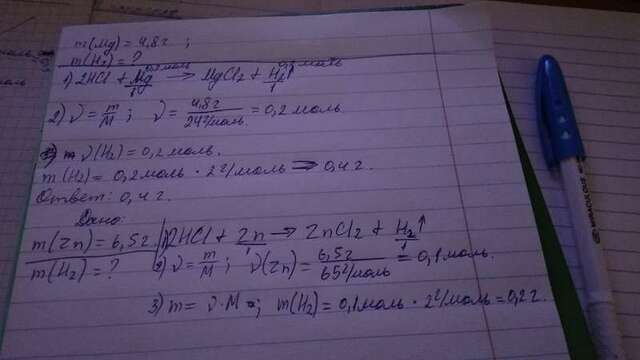 m(Mg) = 4,8г ;
m(H₂) = ?
0,2 моль 0,2 моль
1) 2HCl + Mg → MgCl₂ + H₂↑
1 1
2) ν = m/M ; ν = 4,8г / 24г/моль = 0,2 моль
ν(H₂) = 0,2 моль.
m(H₂) = 0,2 моль · 2г/моль = 0,4 г.
Ответ: 0,4 г.
Дано:
m(Zn) = 6,5г
m(H₂) = ?
1) 2HCl + Zn → ZnCl₂ + H₂↑
1 1
2) ν = m/M ; ν(Zn) = 6,5г / 65г/моль = 0,1 моль
3) m = ν · M ; m(H₂) = 0,1 моль · 2г/моль = 0,2 г.